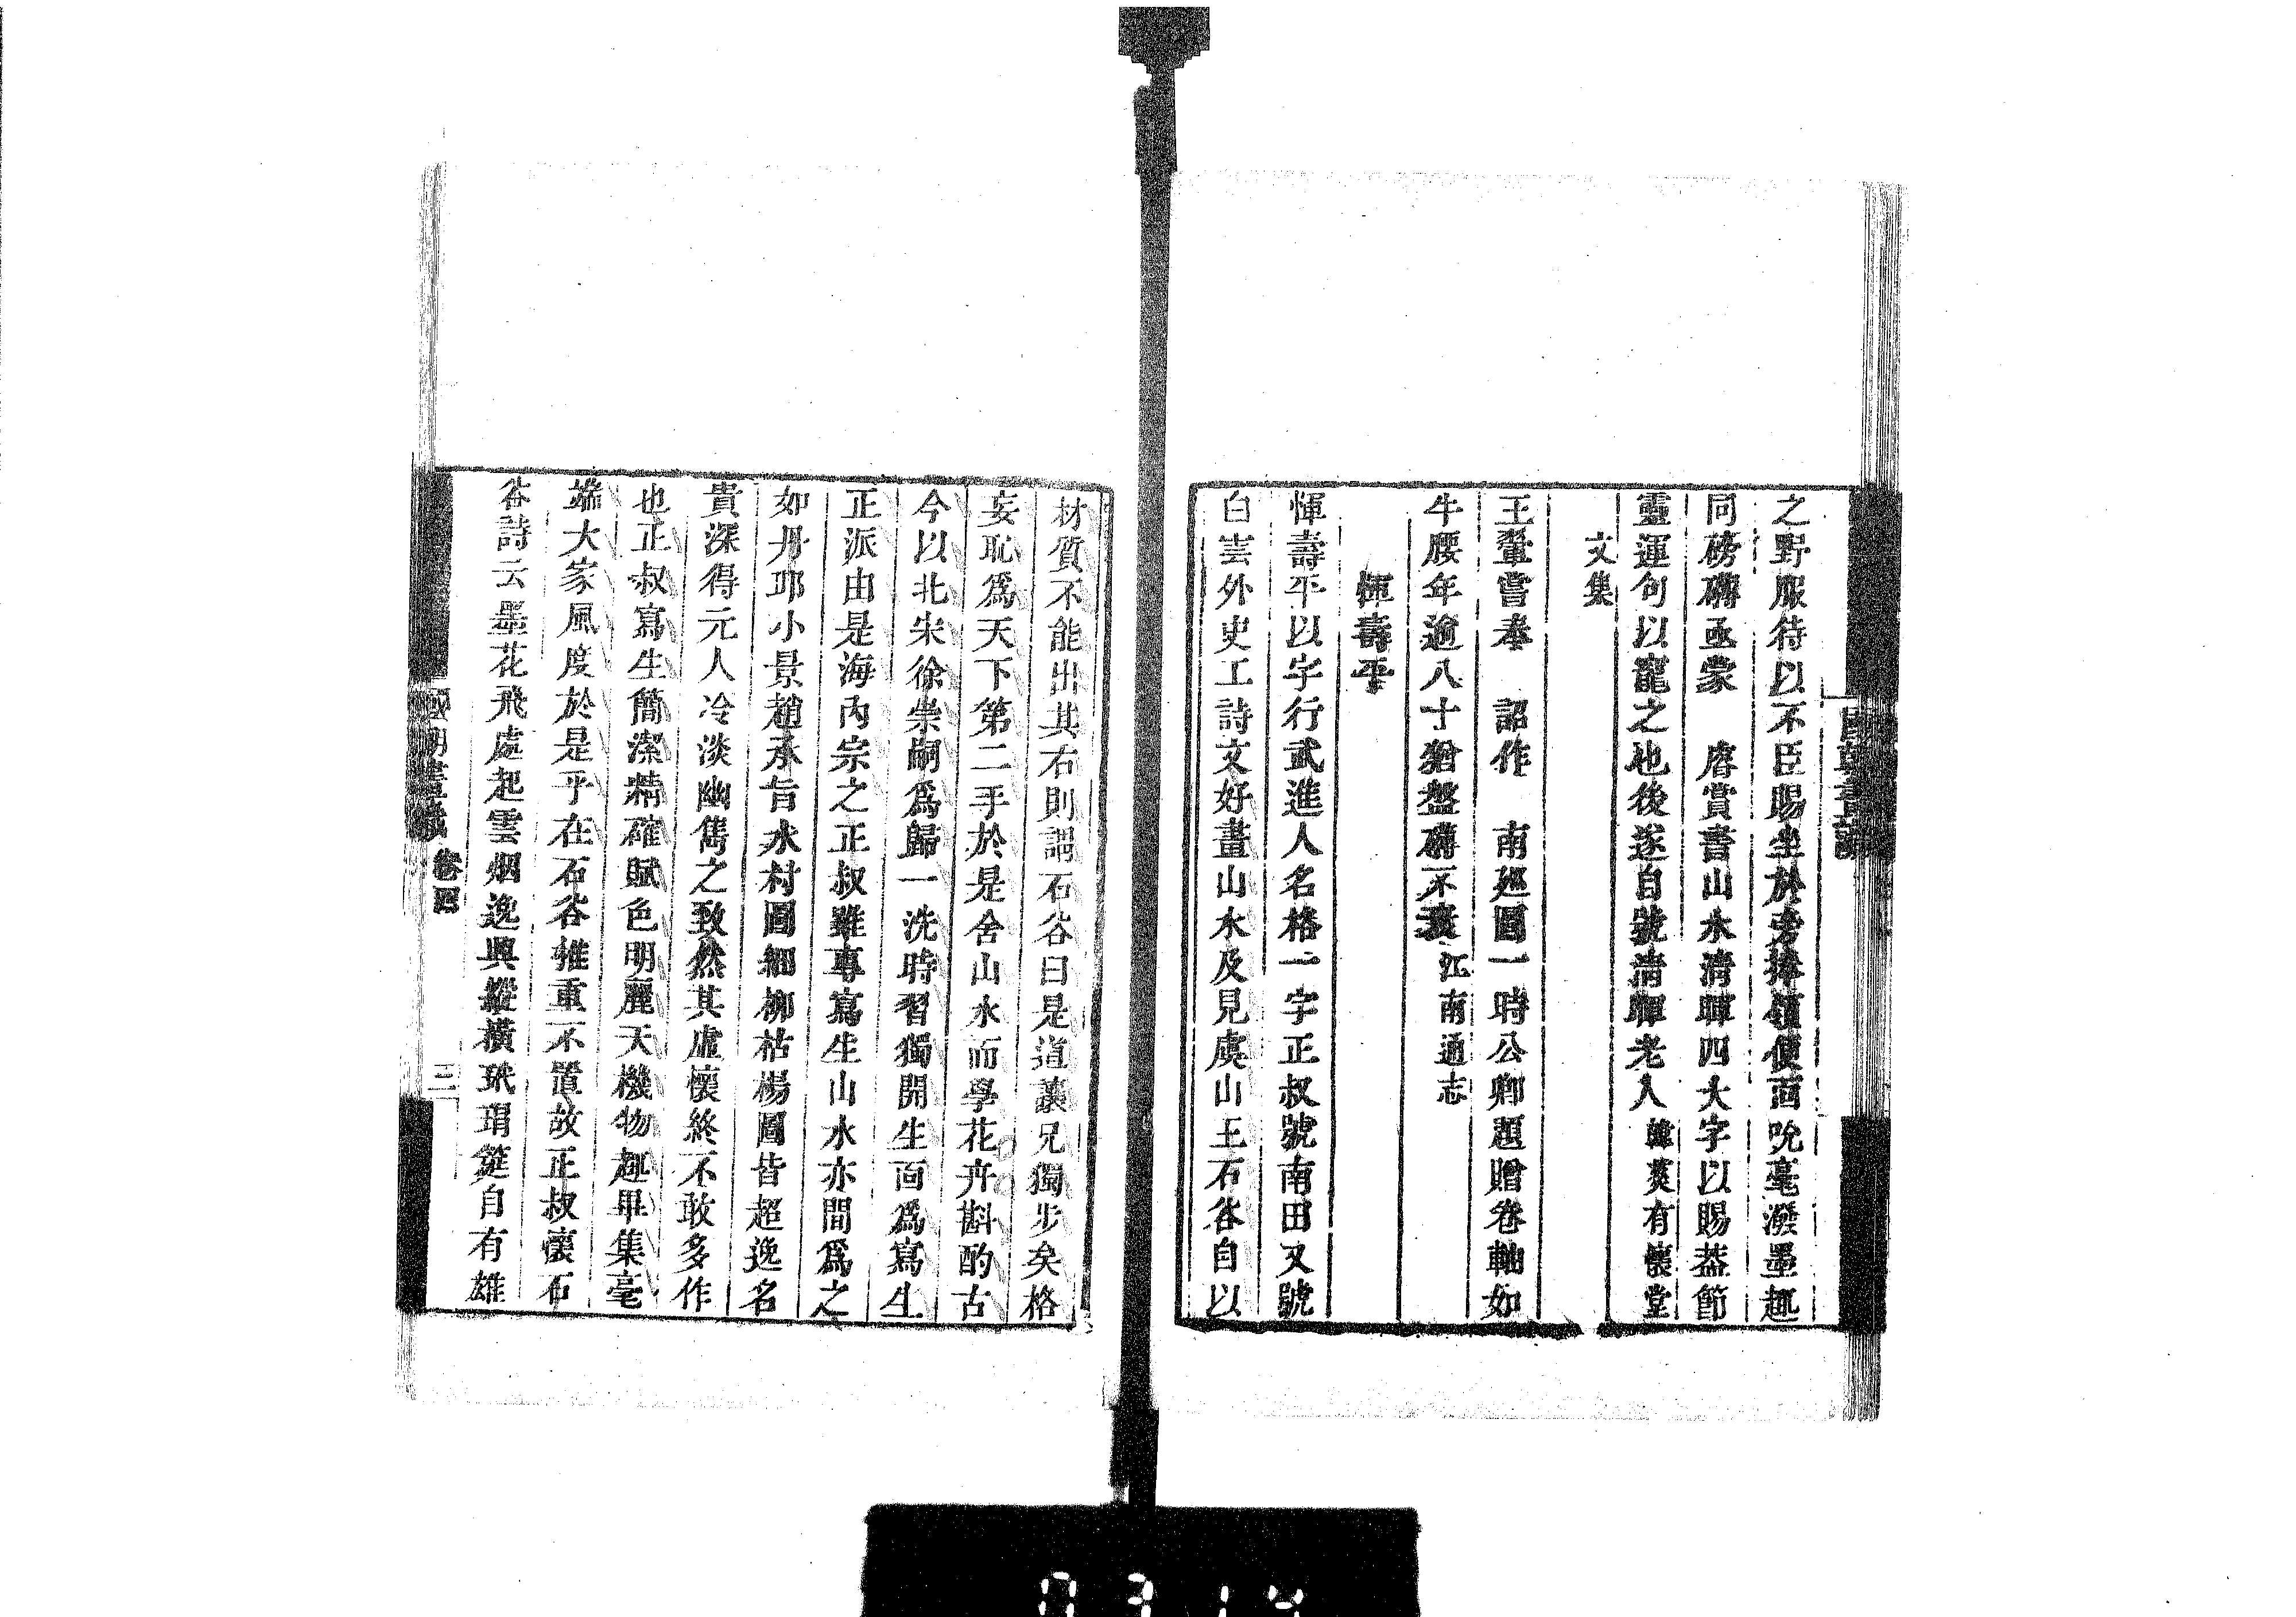 之野服待以不臣賜坐於旁捧領便面吮毫潑墨趣
同磅礴亟蒙　睿賞書山水清暉四大字以賜葢節
靈運句以寵之也後遂自號清暉老人韓菼有懷堂
文集
王翬嘗奉　詔作　南廵圖一時公卿題贈卷軸如
牛腰年逾八十猶盤礴不衰江南通志
惲壽平
惲壽平以字行武進人名格一字正叔號南田又號
白雲外史工詩文好畫山水及見虞山王石谷自以
材質不能出其右則謂石谷曰是道讓兄獨步矣格
妄恥爲天下第二手於是舍山水而學花卉斟酌古
今以北宋徐崇嗣爲歸一洗時習獨開生面爲寫生
正派由是海內宗之正叔雖專寫生山水亦間爲之
如丹邱小景趙承旨水村圖細柳枯楊圖皆超逸名
貴深得元人冷淡幽雋之致然其虛懷終不敢多作
也正叔寫生簡潔精確賦色明麗天機物趣畢集毫
端大家風度於是乎在石谷推重不置故正叔懷石
谷詩云墨花飛處起雲烟逸興縱橫玳瑁筵自有雄
國朝畫識
卷四
三
0314